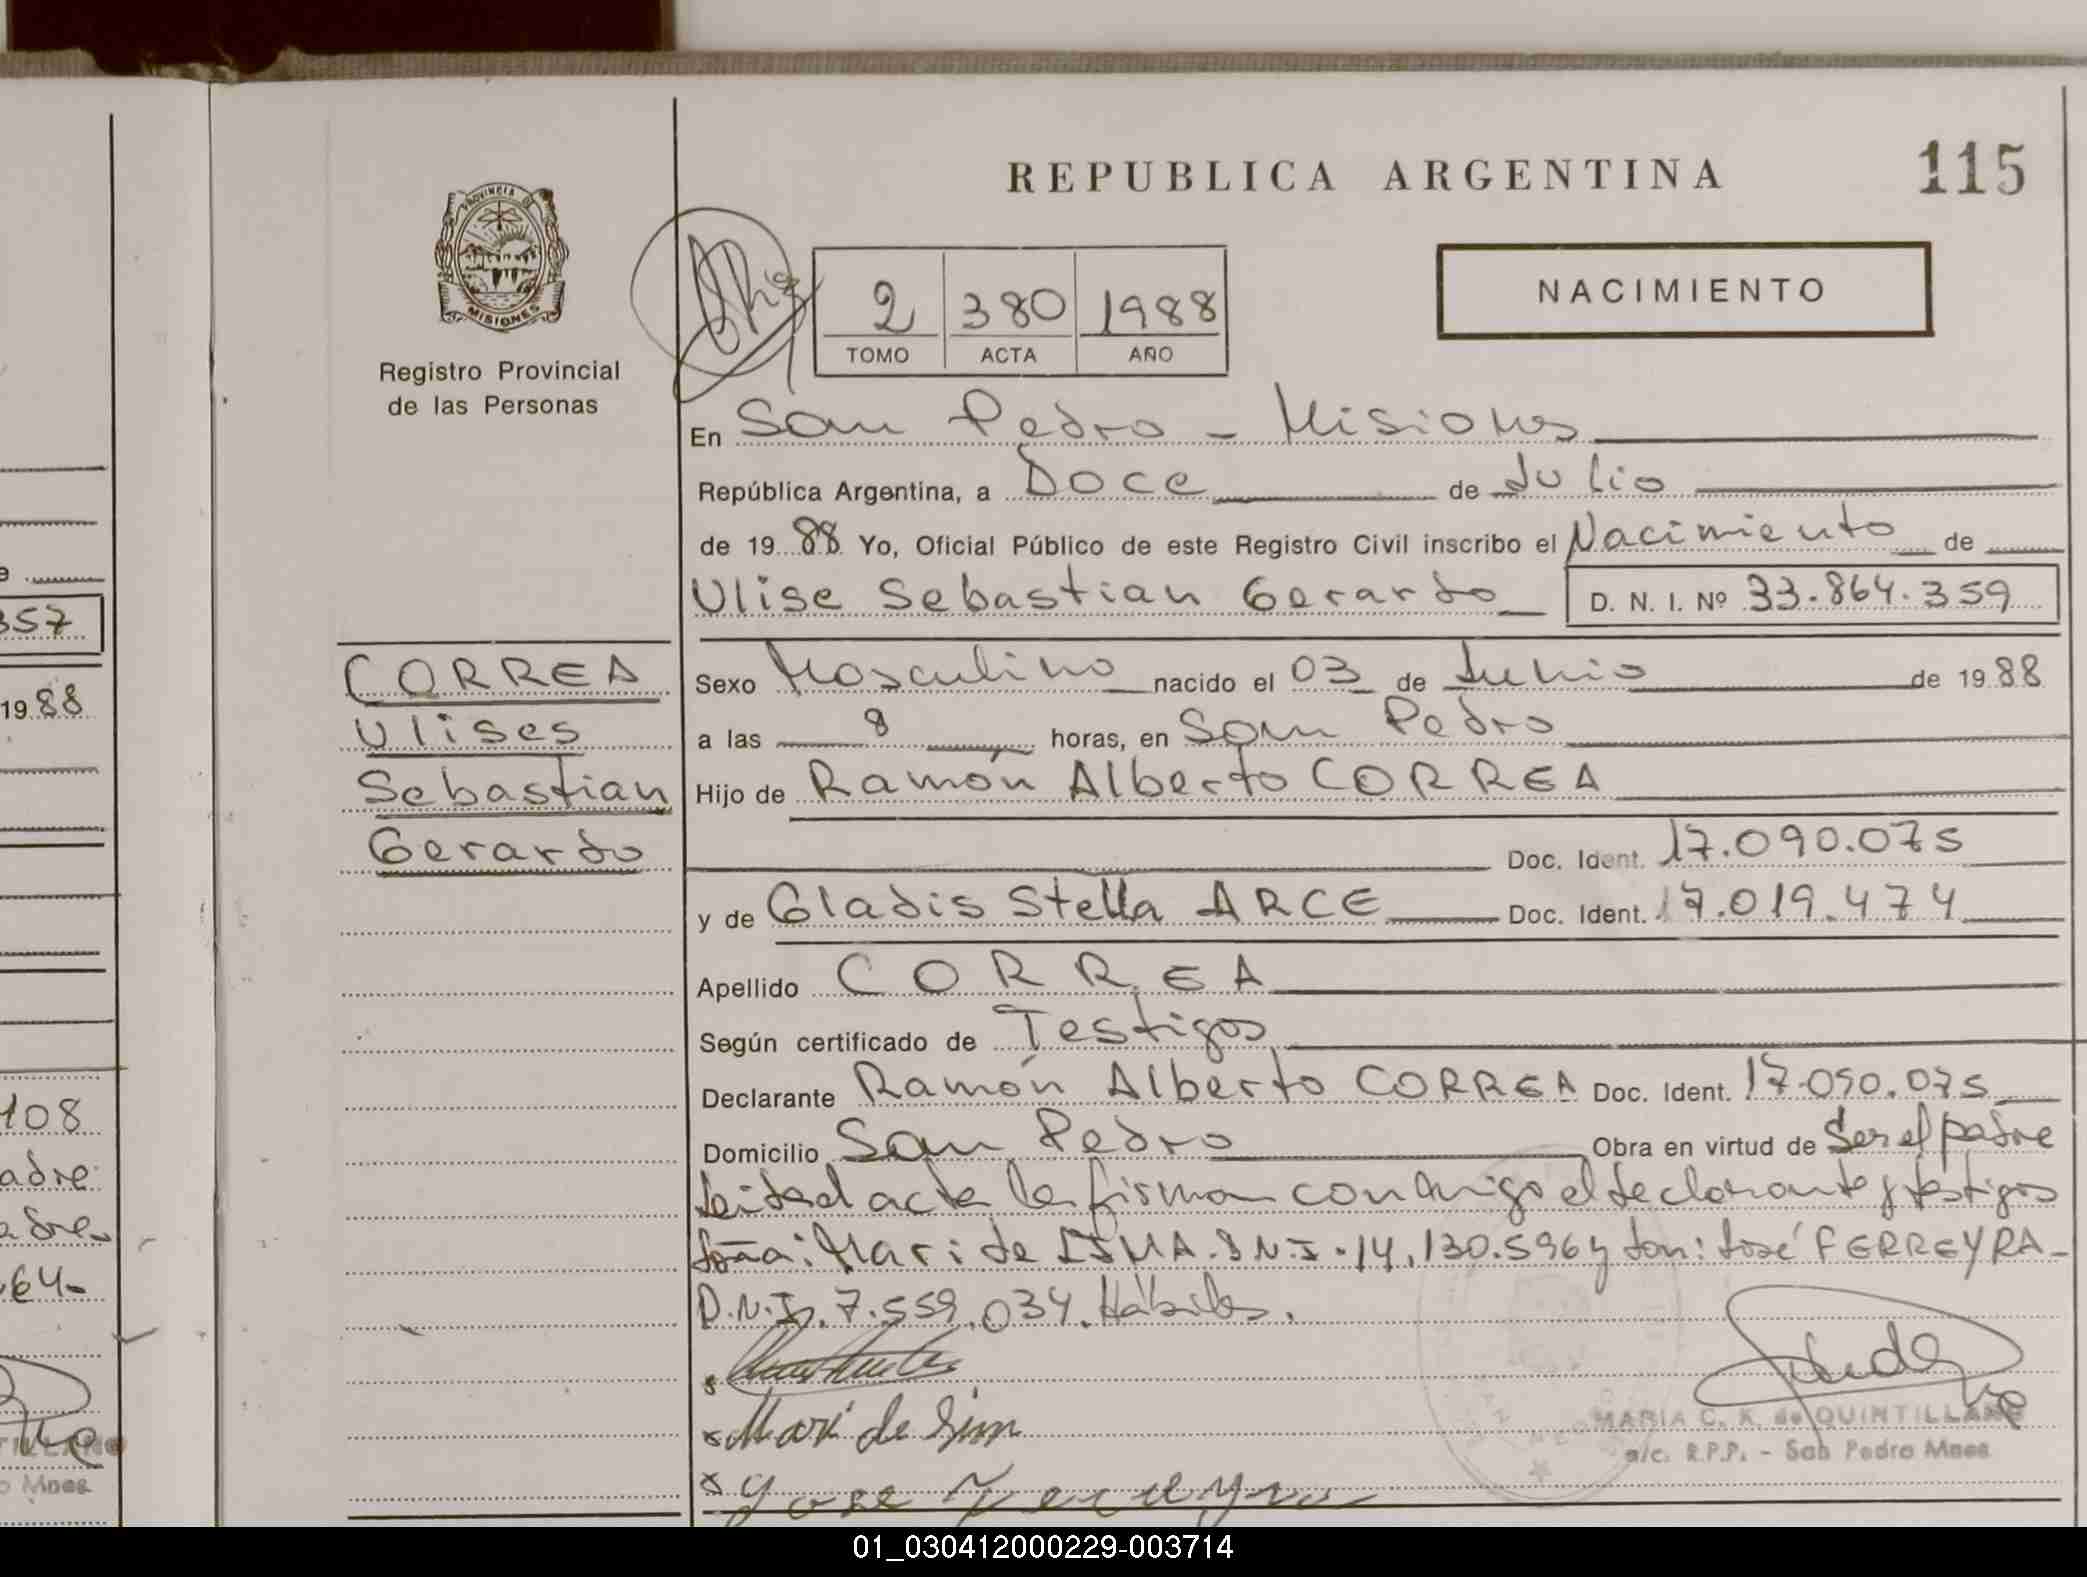 REPUBLICA ARGENTINA
115
PROVINCIA D
MISIONES
Registro Provincial
de las Personas
2 380 1988
TOMO ACTA AÑO
NACIMIENTO
En San Pedro - Misiones
República Argentina, a Doce de Julio
de 1988 Yo, Oficial Público de este Registro Civil inscribo el Nacimiento de
Ulise Sebastian Gerardo D. N. I. Nº 33.864.359
CORREA
Ulises
Sebastian
Gerardo
Sexo Masculino nacido el 03 de Junio de 1988
a las 8 horas, en San Pedro
Hijo de Ramón Alberto CORREA
Doc. Ident. 17.090.075
y de Gladis Stella ARCE Doc. Ident. 17.019.474
Apellido CORREA
Según certificado de Testigos
Declarante Ramón Alberto CORREA Doc. Ident. 17.090.075
Domicilio San Pedro Obra en virtud de Ser el padre
Leida el acta la firman conmigo el declarante y testigos
doña: Mari de LIMA. D.N.I. 14.130.596 y don: José FERREYRA-
D.N.I. 7.559.034. Hábiles.
Mari de Lim
Jose Ferreyra
MARIA C. K. de QUINTILLANO
a/c. R.P.P. - San Pedro Mnes
357
1988
108
adre
adre
64-
TILLANO
o Mnes
01_030412000229-003714